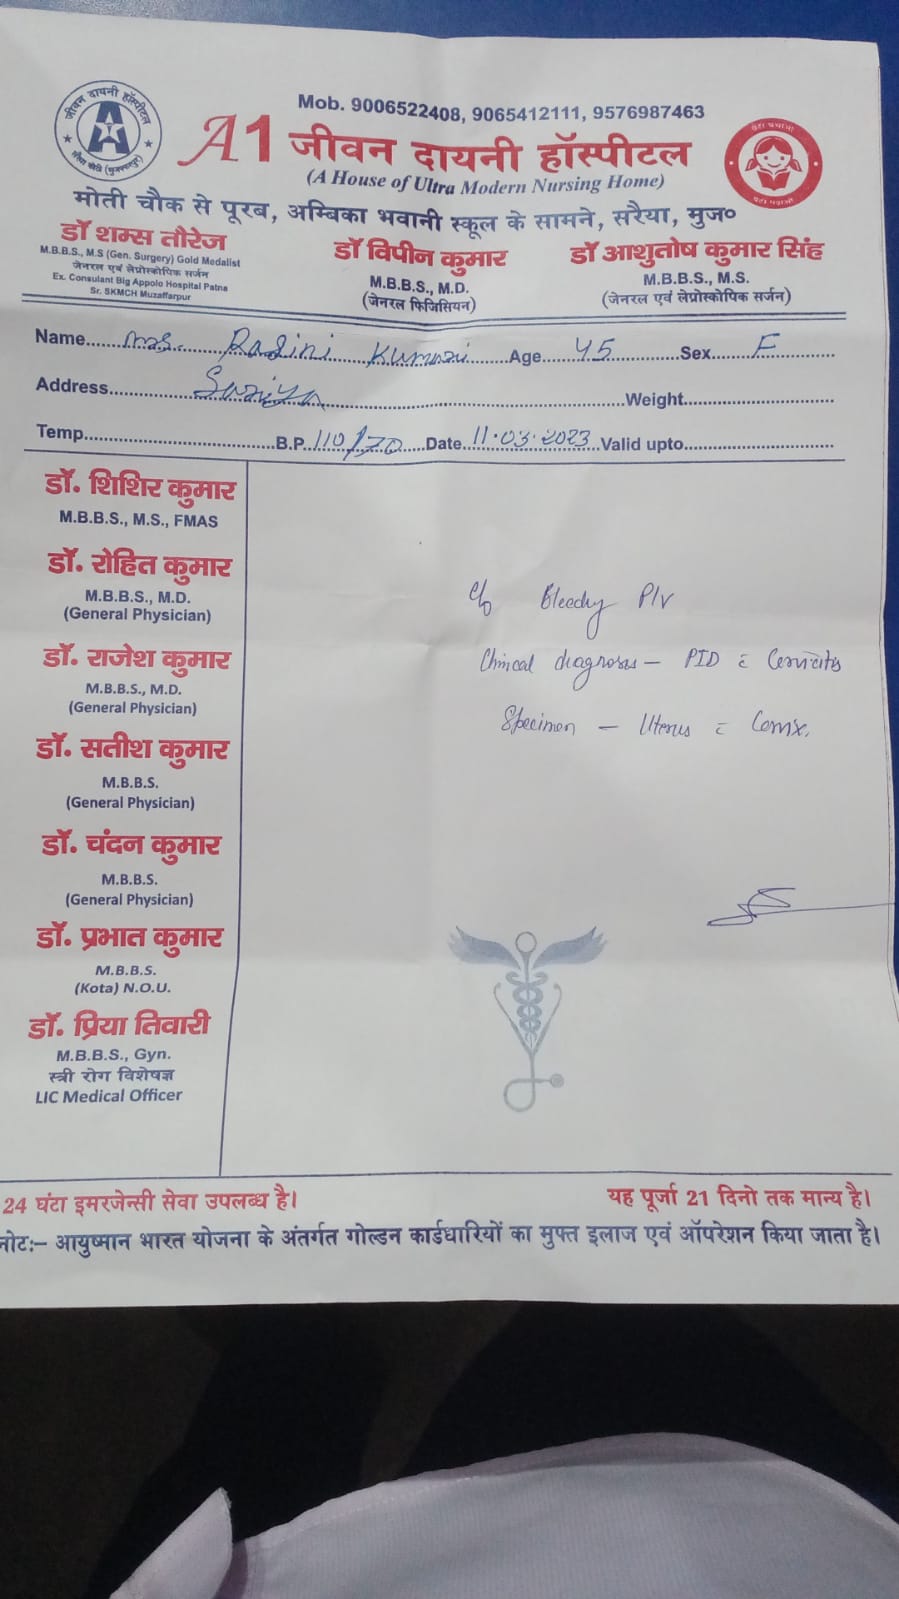 Mob. 9006522408, 9065412111, 9576987463
जीवन दायनी हॉस्पीटल
सरैया कोठी (मुजफ्फरपुर)
A1 जीवन दायनी हॉस्पीटल
(A House of Ultra Modern Nursing Home)
मोती चौक से पूरब, अम्बिका भवानी स्कूल के सामने, सरैया, मुज०
डॉ शम्स तौरेज
M.B.B.S., M.S (Gen. Surgery) Gold Medalist
जेनरल एवं लेप्रोस्कोपिक सर्जन
Ex. Consulant Big Appolo Hospital Patna
Sr. SKMCH Muzaffarpur
डॉ विपीन कुमार
M.B.B.S., M.D.
(जेनरल फिजिसियन)
डॉ आशुतोष कुमार सिंह
M.B.B.S., M.S.
(जेनरल एवं लेप्रोस्कोपिक सर्जन)
Name...... Mrs. Ragini Kumari ......Age...... 45 ......Sex...... F ......
Address...... Sariya ......Weight......
Temp......B.P. 110/70 ......Date. 11.03.2023 Valid upto......
डॉ. शिशिर कुमार
M.B.B.S., M.S., FMAS
डॉ. रोहित कुमार
M.B.B.S., M.D.
(General Physician)
डॉ. राजेश कुमार
M.B.B.S., M.D.
(General Physician)
डॉ. सतीश कुमार
M.B.B.S.
(General Physician)
डॉ. चंदन कुमार
M.B.B.S.
(General Physician)
डॉ. प्रभात कुमार
M.B.B.S.
(Kota) N.O.U.
डॉ. प्रिया तिवारी
M.B.B.S., Gyn.
स्त्री रोग विशेषज्ञ
LIC Medical Officer
c/o Bleeding P/V
Clinical diagnosis — PID c̄ Cervicitis
Specimen — Uterus c̄ Cervix.
24 घंटा इमरजेन्सी सेवा उपलब्ध है।
यह पूर्जा 21 दिनो तक मान्य है।
नोट:– आयुष्मान भारत योजना के अंतर्गत गोल्डन कार्डधारियों का मुफ्त इलाज एवं ऑपरेशन किया जाता है।